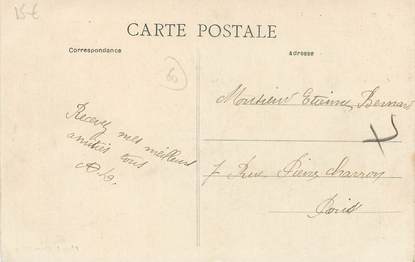 15€
CARTE POSTALE
Correspondance
adresse
60
Monsieur Etienne Bernard
Recevez mes meilleurs
amitiés tous
7 Rue Pierre Charron
Paris